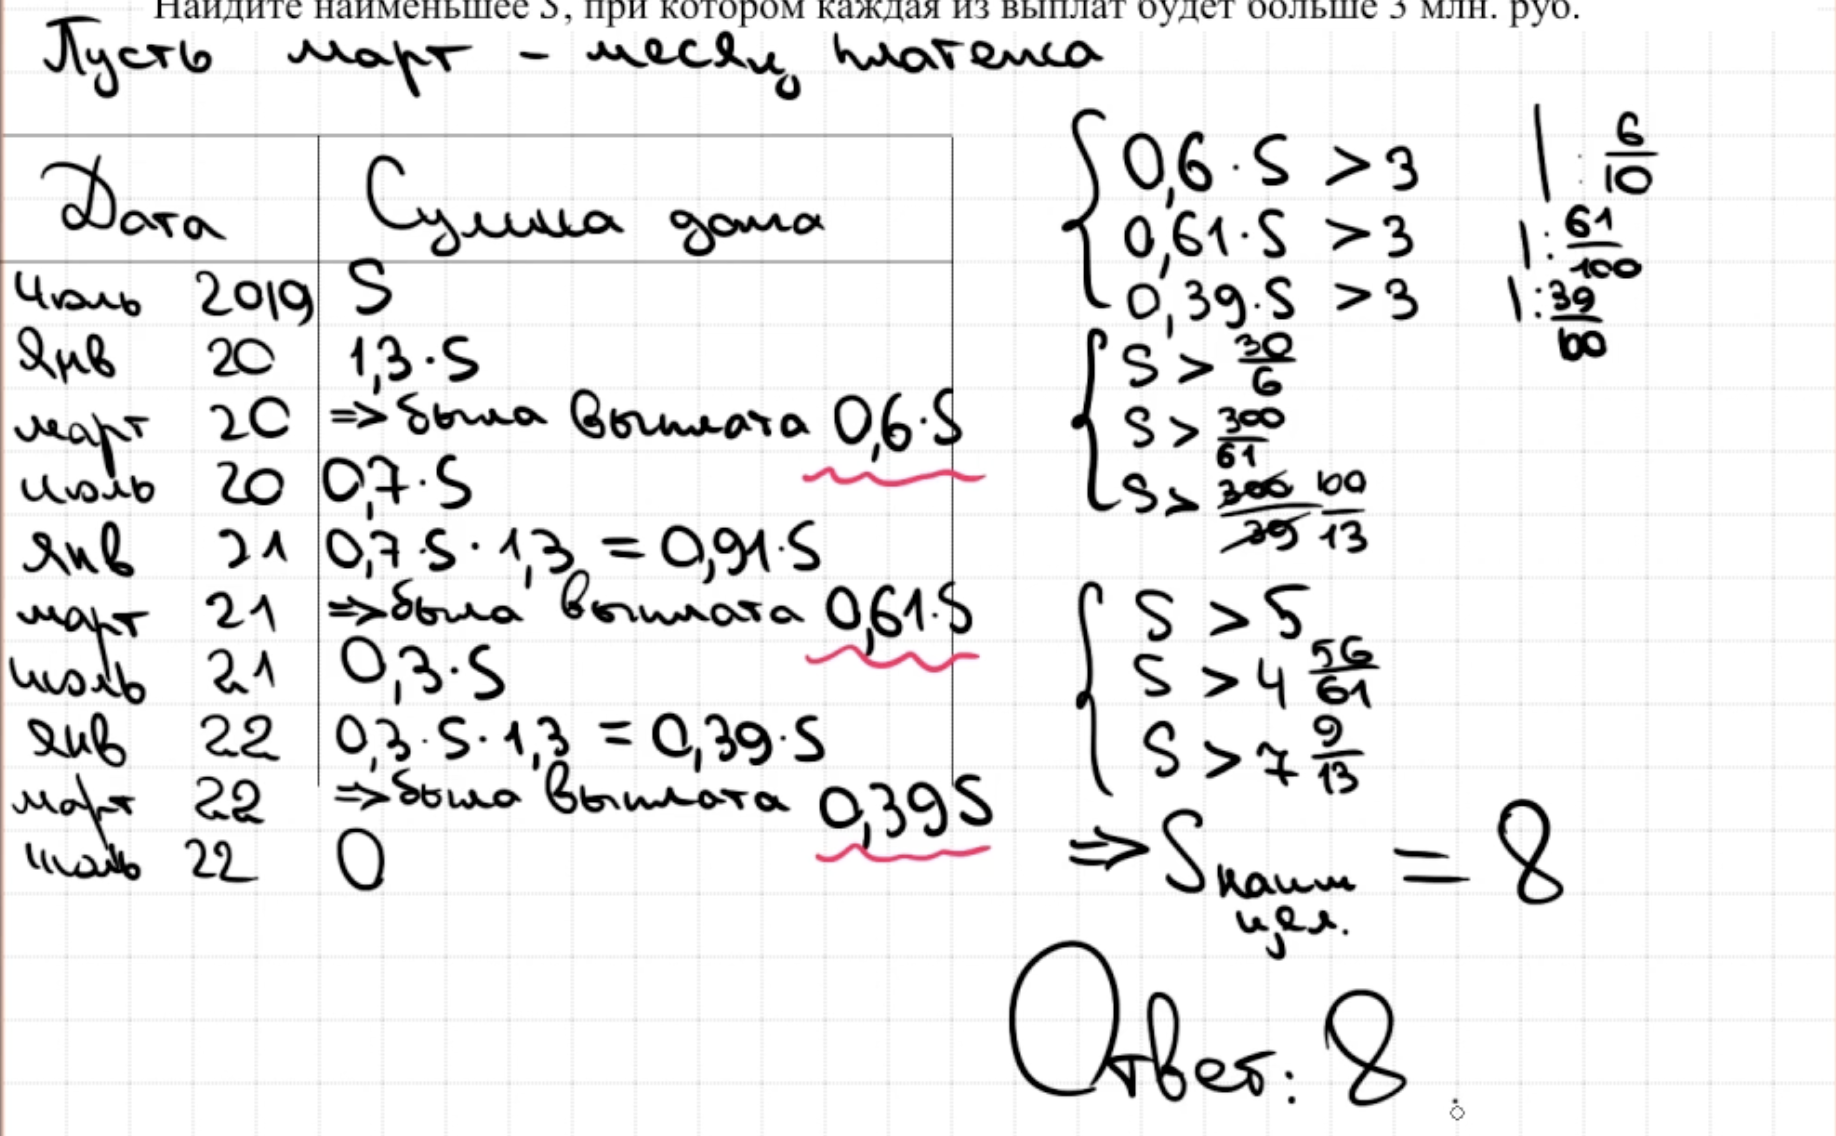 Найдите наименьшее S, при котором каждая из выплат будет больше 3 млн. руб.
Пусть март - месяц платежа
Дата Сумма долга
Июль 2019 S
Янв 20 1,3·S
март 20 => была выплата 0,6·S
июль 20 0,7·S
янв 21 0,7·S·1,3 = 0,91·S
март 21 => была выплата 0,61·S
июль 21 0,3·S
янв 22 0,3·S·1,3 = 0,39·S
март 22 => была выплата 0,39S
июль 22 0
{ 0,6·S > 3 | : 6/10
0,61·S > 3 | : 61/100
0,39·S > 3 | : 39/100
{ S > 30/6
S > 300/61
S > 300/39 100/13
{ S > 5
S > 4 56/61
S > 7 9/13
=> S наим = 8
цел.
Ответ: 8